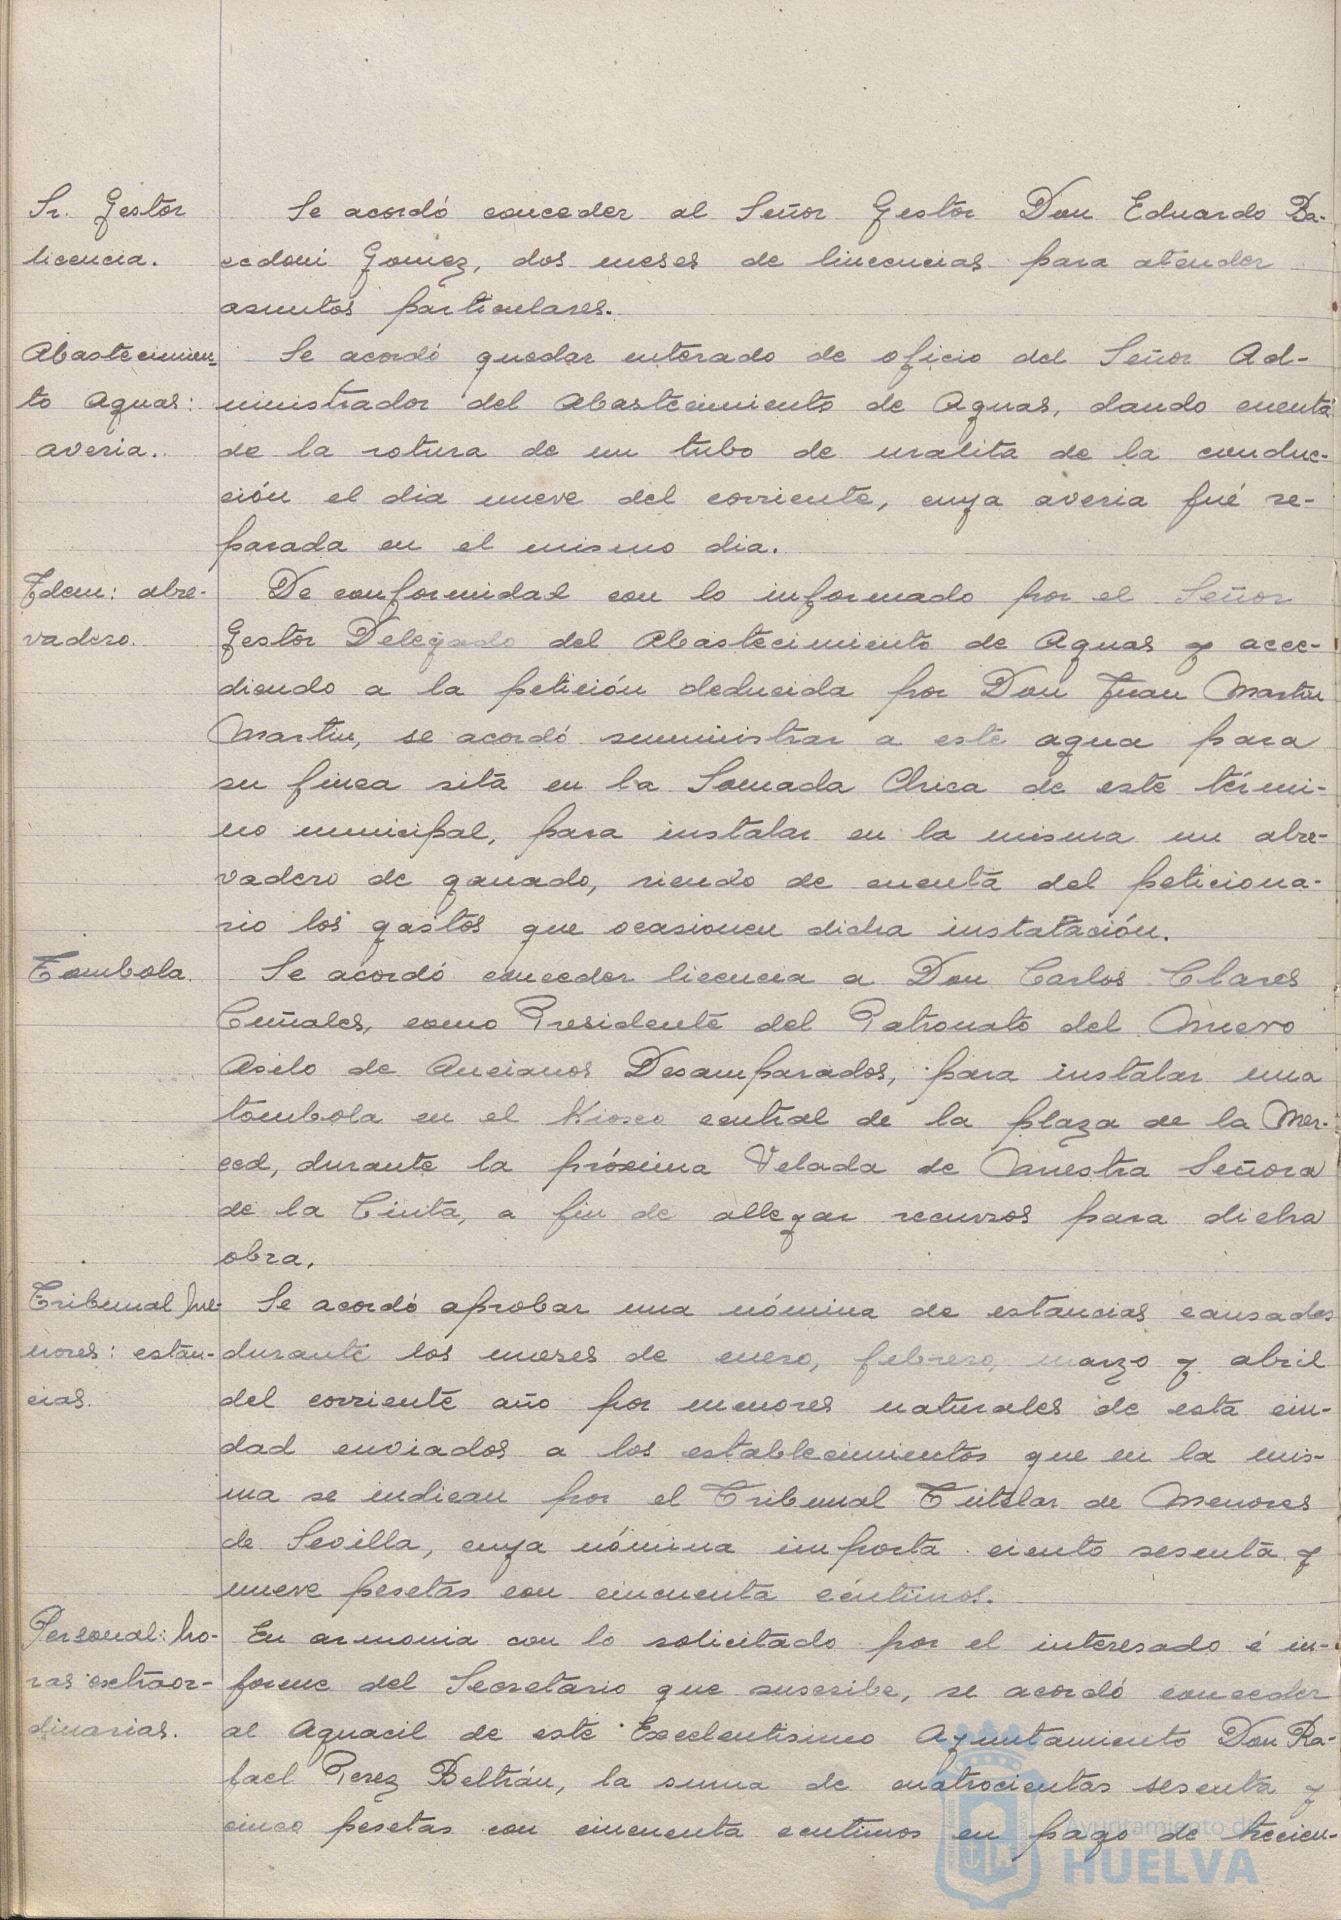 Sr. Gestor
licencia.
Se acordó conceder al Señor Gestor Don Eduardo Ba-
ccdoni Gomez, dos meses de lincencias para atender
asuntos particulares.
Abastecimien-
to Aguas:
averia.
Se acordó quedar enterado de oficio del Señor Ad-
ministrador del Abastecimiento de Aguas, dando cuenta
de la rotura de un tubo de uralita de la conduc-
ción el dia nueve del corriente, cuya averia fué re-
parada en el mismo dia.
Idem: abre-
vadero.
De conformidad con lo informado por el Señor
Gestor Delegado del Abastecimiento de Aguas y acce-
diendo a la petición deducida por Don Juan Martin
Martin, se acordó suministrar a este agua para
su finca sita en la Chica de este térmi-
no municipal, para instalar en la misma un abre-
vadero de ganado, siendo de cuenta del peticiona-
rio los gastos que ocasionen dicha instalación.
Tombola.
Se acordó conceder licencia a Don Carlos Clares
Cuñales, como Presidente del Patronato del Nuevo
Asilo de Ancianos Desamparados, para instalar una
tombola en el Kiosco central de la plaza de la Mer-
ced, durante la próxima Velada de Nuestra Señora
de la Cinta, a fin de allegar recursos para dicha
obra.
Tribunal Me-
nores: estan-
cias.
Se acordó aprobar una nómina de estancias causadas
durante los meses de enero, febrero, marzo y abril
del corriente año por menores naturales de esta ciu-
dad enviados a los establecimientos que en la mis-
ma se indican por el Tribunal Tutelar de Menores
de Sevilla, cuya nómina importa ciento sesenta y
nueve pesetas con cincuenta céntimos.
Personal: ho-
ras extraor-
dinarias.
En armonia con lo solicitado por el interesado é in-
forme del Secretario que suscribe, se acordó conceder
al Aguacil de este Excelentisimo Ayuntamiento Don Ra-
fael Perez Beltrán, la suma de cuatrocientas sesenta y
cinco pesetas con cincuenta centimos en pago de trecien-
Ayuntamiento de
HUELVA